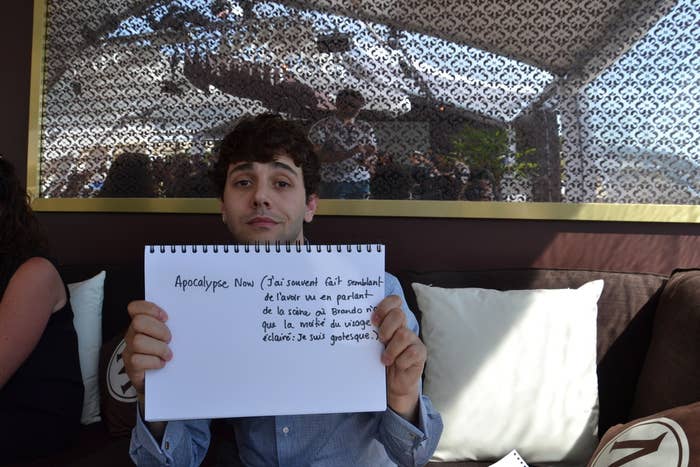 Apocalypse Now (J'ai souvent fait semblant
de l'avoir vu en parlant
de la scène où Brando n'a
que la moitié du visage
éclairé : Je suis grotesque.)